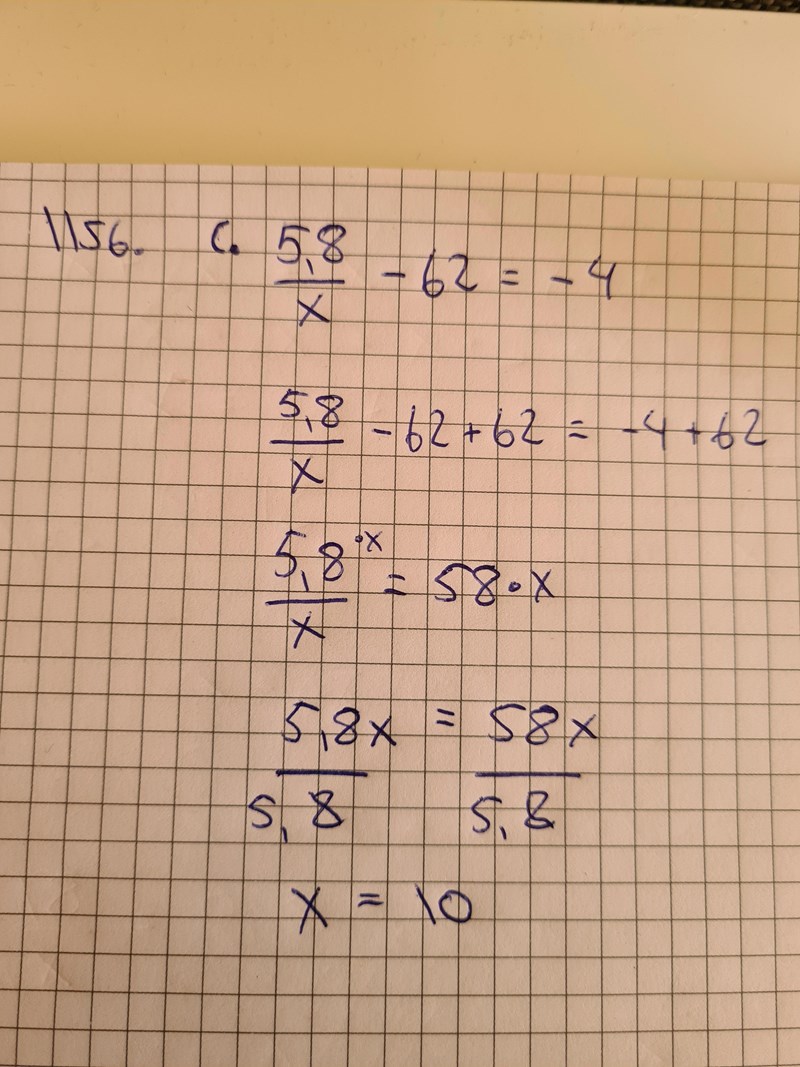 1156. C. 5,8/x - 62 = -4
5,8/x - 62 + 62 = -4 + 62
5,8·x/x = 58·x
5,8x/5,8 = 58x/5,8
x = 10